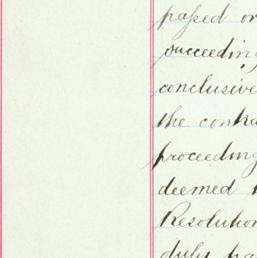 passed or
succeeding
conclusive
the contra
proceeding
deemed t
Resolution
duly pa